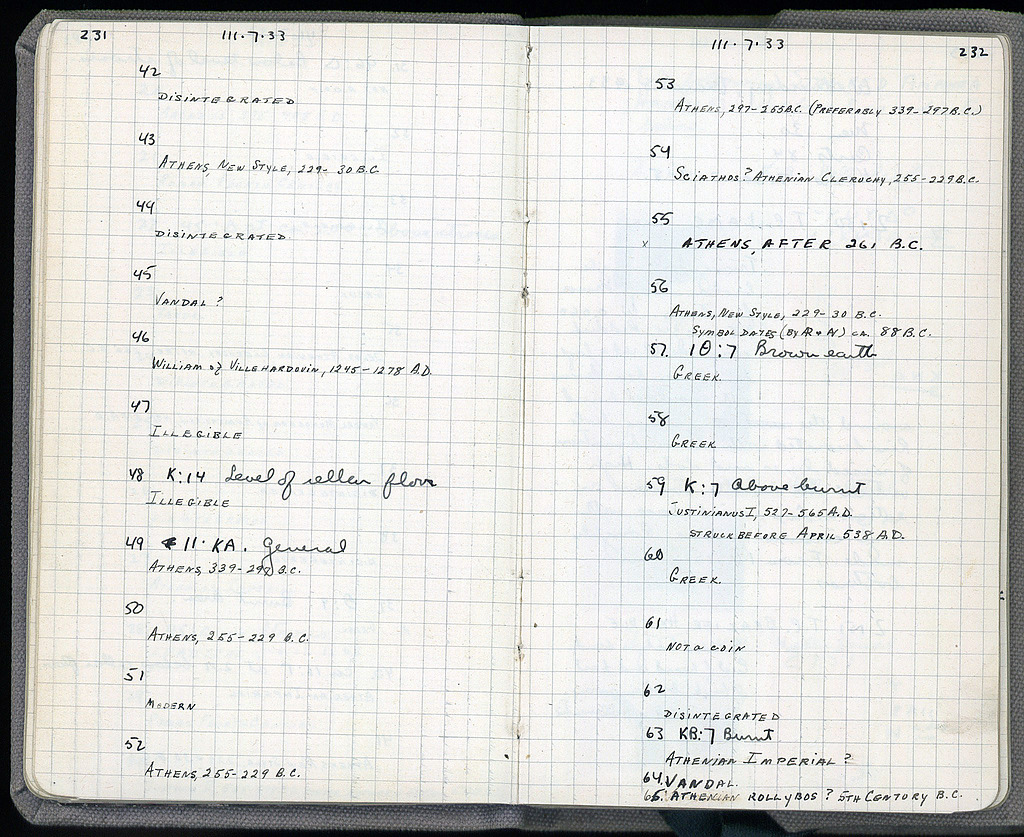 231
III·7·33
42
DISINTEGRATED
43
ATHENS, NEW STYLE, 229-30 B.C.
44
DISINTEGRATED.
45
VANDAL?
46
WILLIAM of VILLEHARDOUIN, 1245-1278 A.D.
47
ILLEGIBLE
48 K:14 Level of cellar floor
ILLEGIBLE
49 11·KA. General
ATHENS, 339-297 B.C.
50
ATHENS, 255-229 B.C.
51
MODERN
52
ATHENS, 255-229 B.C.
III·7·33
232
53
ATHENS, 297-255 B.C. (PREFERABLY 339-297 B.C.)
54
SCIATHOS? ATHENIAN CLERUCHY, 255-229 B.C.
55
x ATHENS, AFTER 261 B.C.
56
ATHENS, NEW STYLE, 229-30 B.C.
SYMBOL DATES (BY AR + AV) CA. 88 B.C.
57. 10:7 Brown earth
GREEK.
58
GREEK
59 K:7 Above burnt
JUSTINIANUS I, 527-565 A.D.
STRUCK BEFORE APRIL 538 A.D.
60
GREEK.
61
NOT a COIN
62
DISINTEGRATED
63 KB:7 Burnt
ATHENIAN IMPERIAL?
64. VANDAL.
65. ATHENIAN KOLLYBOS? 5TH CENTURY B.C.